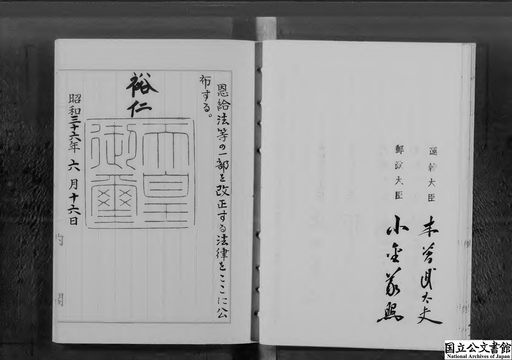 運輸大臣 木暮武太夫
郵政大臣 小金義照
恩給法等の一部を改正する法律をここに公
布する。
裕仁
天皇
御璽
昭和三十六年六月十六日
国立公文書館
National Archives of Japan